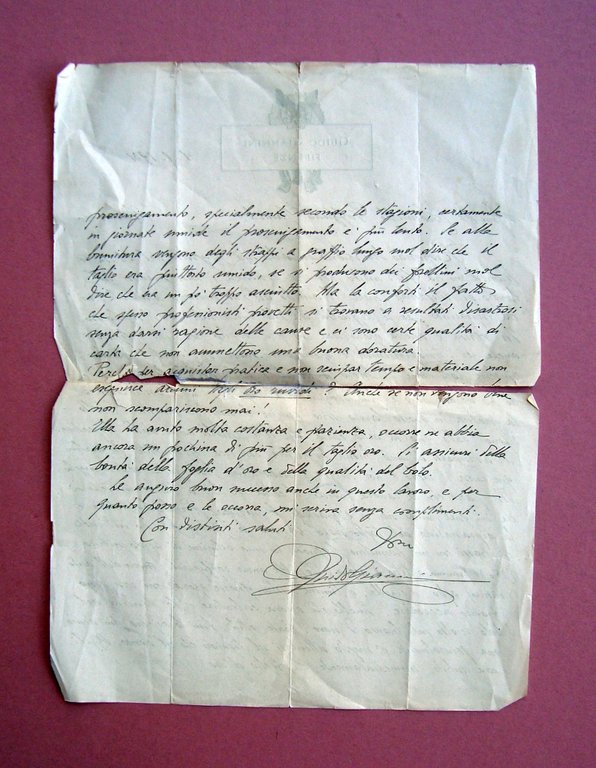 prosciugamento, specialmente secondo le stagioni, certamente
in giornate umide il prosciugamento è più lento. Se alla
brunitura vengono degli strappi a graffio lungo vuol dire che il
taglio era piuttosto umido, se si producono dei frollini vuol
dire che era un po' troppo asciutto. Ma la conforti il fatto
che spesso professionisti provetti si trovano a resultati disastrosi
senza darsi ragione delle cause e ci sono certe qualità di
carta che non ammettono una buona doratura.
Perchè per acquistar pratica e non sciupar tempo e materiale non
eseguisce alcuni tagli oro ruvido? Anche se non vengono bene
non scompariscono mai!
Ella ha avuto molta costanza e pazienza, occorre ne abbia
ancora un pochino di più per il taglio oro. Si assicuri della
bontà della foglia d'oro e della qualità del bolo.
Le auguro buon successo anche in questo lavoro, e per
quanto posso e le occorra, mi scriva senza complimenti.
Con distinti saluti
Guido Giannini
GUIDO GIANNINI
FIRENZE